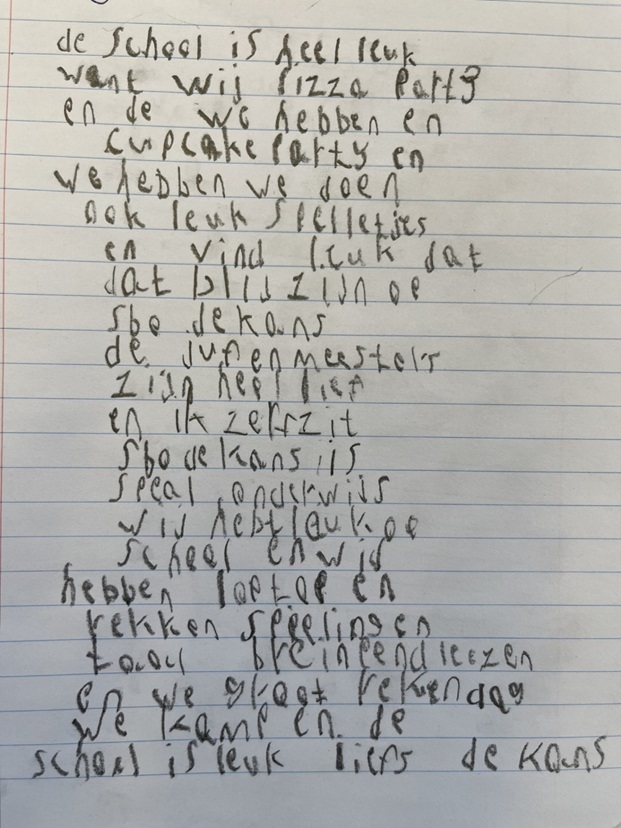 de school is heel leuk
want wij pizza party
en de we hebben en
cupcake party en
we hebben we doen
ook leuk spelletjes
en vind leuk dat
dat blij zijn op
sbo de kans
de jufenmeesters
zijn heel lief
en ik zelfzit
sbo de kans iis
speal onderwijs
wij hebt leuk op
scheel en wij
hebben laptop en
rekken speelingen
taal breinpend leezen
en we groot rekendag
we kamp en de
school is leuk liefs de kans